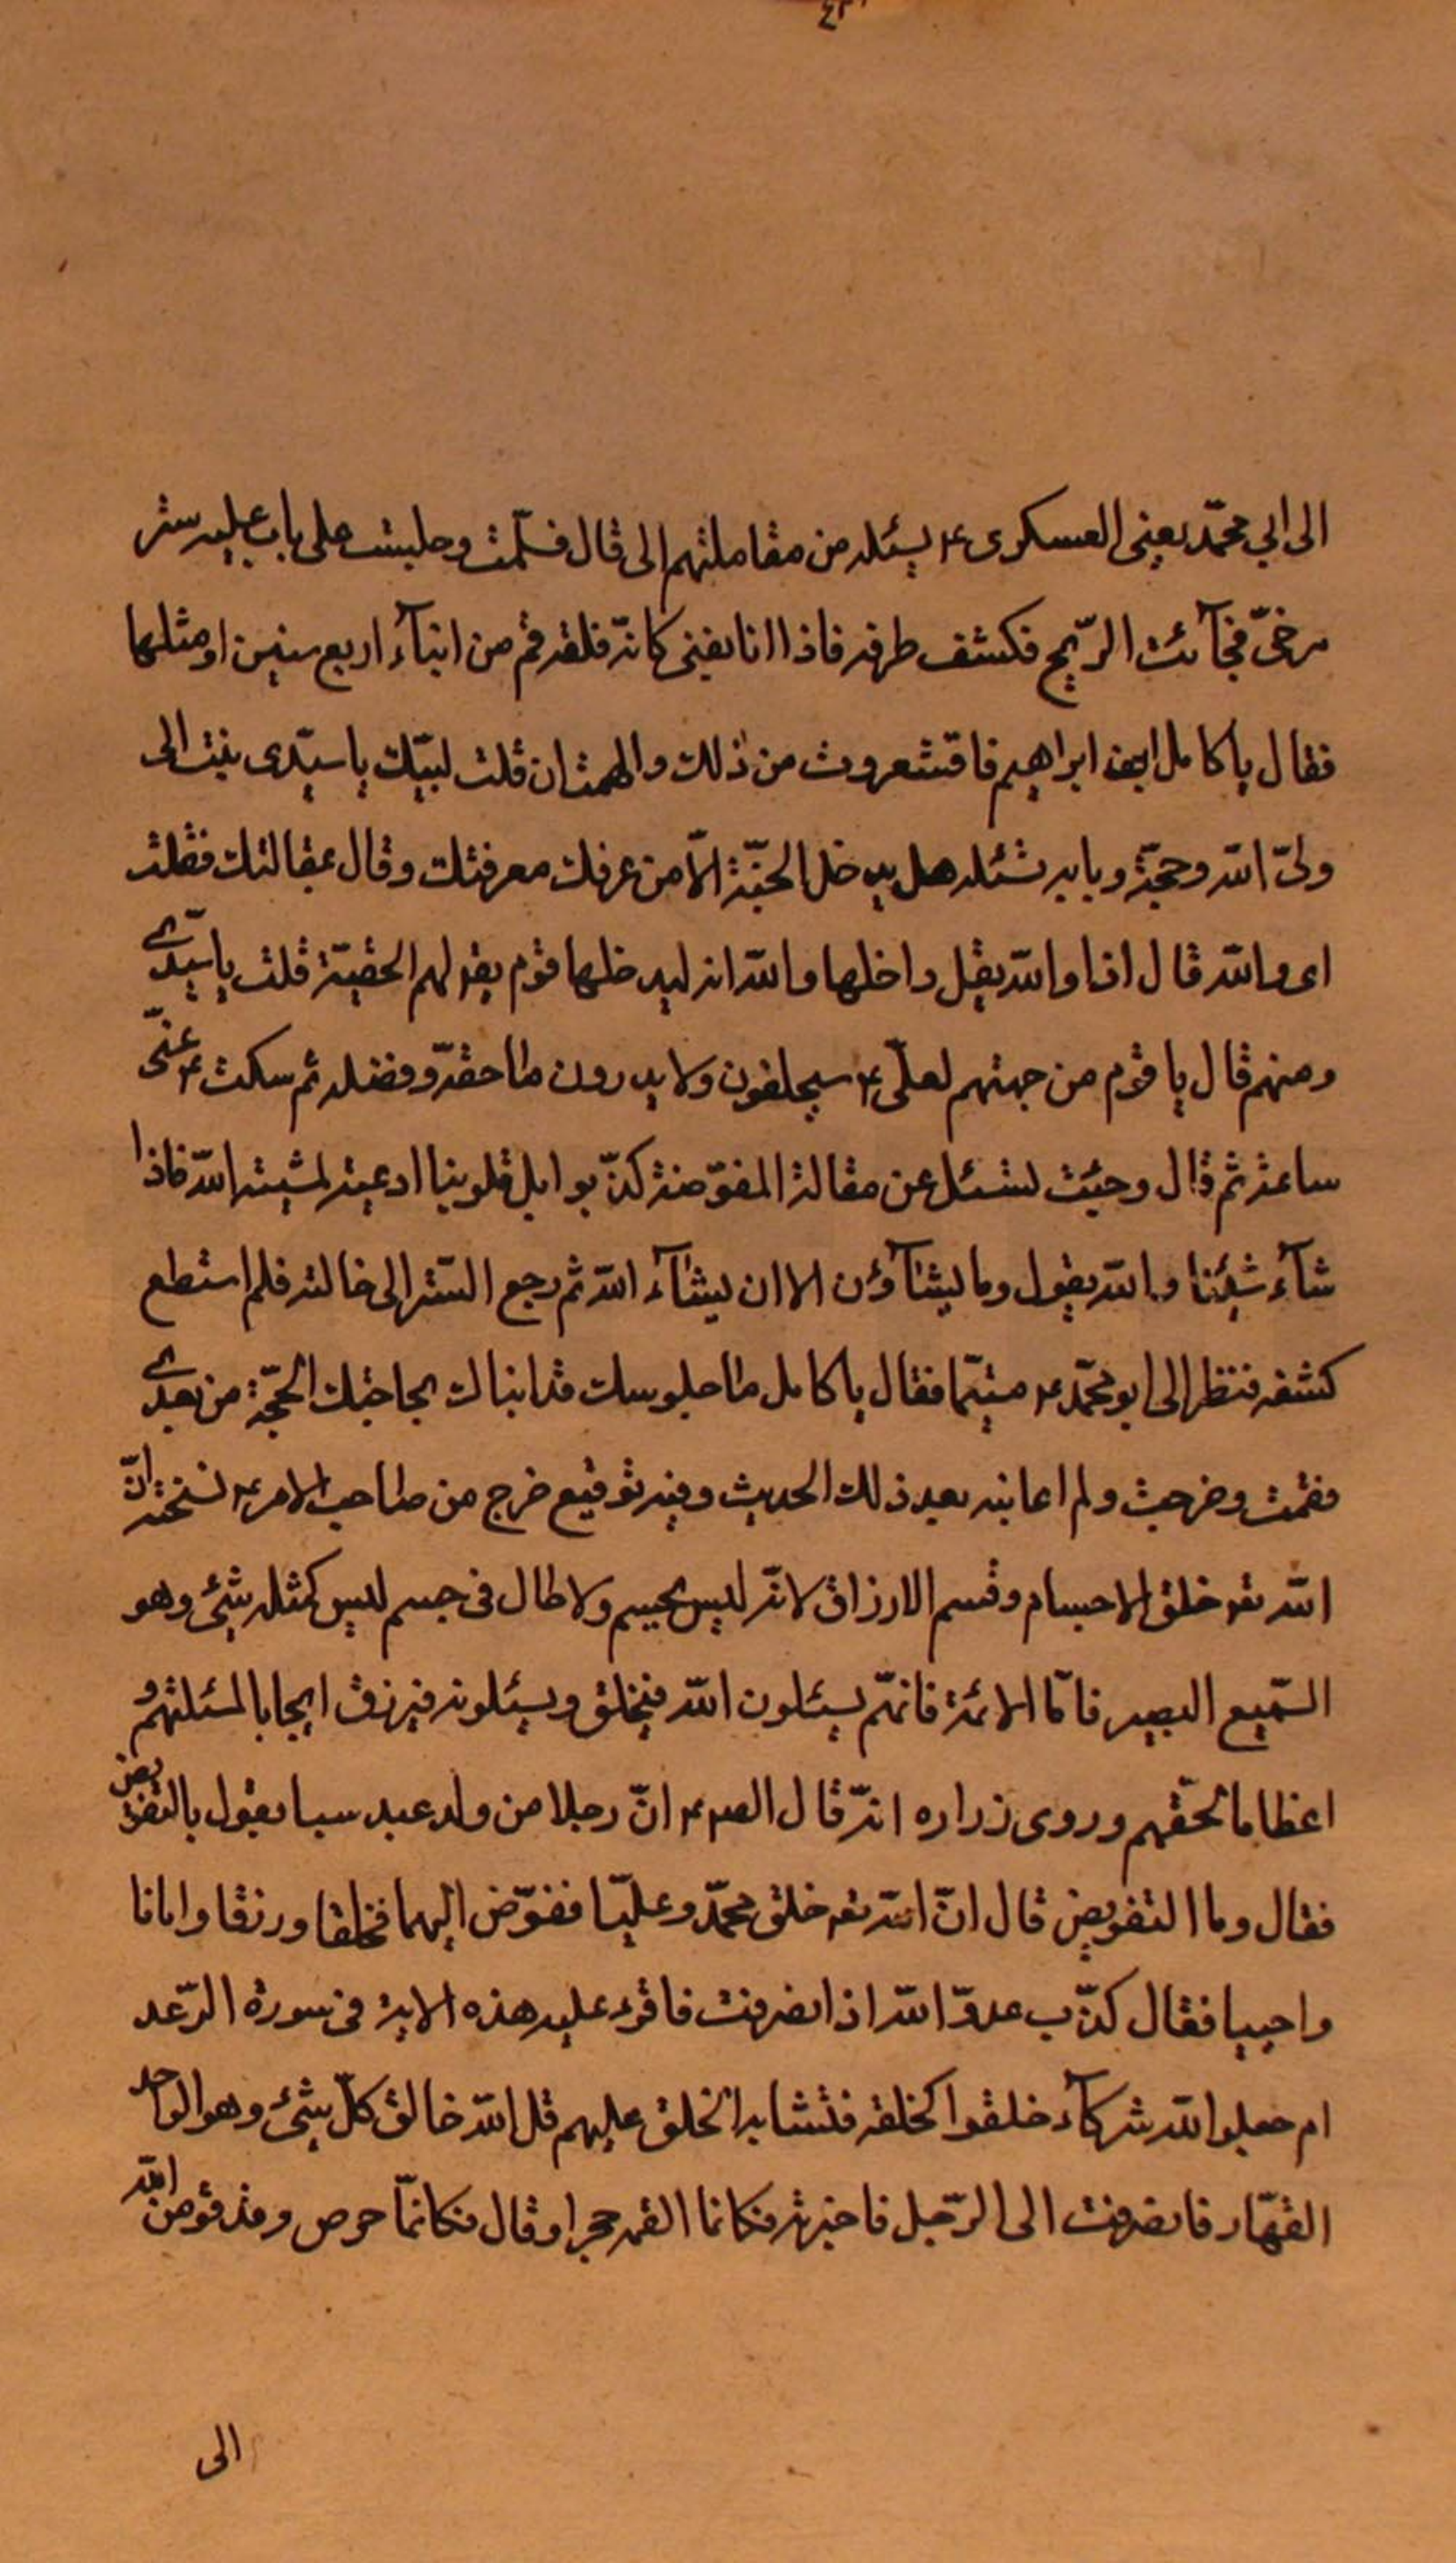 الى ابي محمّد يعنى العسكرى ع يسئله من مقاملتهم الى قال فسلّمت وجلست على باب عليه ستر
مرخىّ فجآئت الرّيح فكشف طرفه فاذا انا بفتى كانّه فلقه قمر من ابنآء اربع سنين او مثلها
فقال يا كامل ابن ابراهيم فاقتشعروت من ذلك والهمت ان قلت لبيّك يا سيّدى بنت الى
ولىّ الله وحجّة وبابه تسئله هل يدخل الجنّة الّا من عرفك معرفتك وقال بمقالتك فقلت
اى والله قال اذا والله يقل داخلها والله انه ليدخلها قوم يقو لهم الحقيّة قلت يا سيّدى
ومنهم قال يا قوم من حبتهم لعلىّ ع سيحلفون ولا يدرون ما حقّه وفضله ثم سكت ع عنّى
ساعة ثم قال وجئت لتسئل عن مقالة المفوّضة كذّبوا بل قلوبنا ادعية لمشية الله فاذا
شآء شيئنا والله يقول وما يشآؤن الا ان يشآء الله ثم رجع السّتر الى خالته فلم استطع
كشفه فنظر الى ابو محمّد ع متبتّما فقال يا كامل ما جلوسك قد انباك بحاجتك الحجّة من بعدى
فقمت وخرجت ولم اعاينه بعد ذلك الحديث وفيه توقيع خرج من صاحب الامر ع نسخته انّ
الله تع خلق الاجسام وقسم الارزاق لانّه ليس بجسم ولا حال فى جسم ليس كمثله شئ وهو
السّميع البصير فامّا الائمة فانهم يسئلون الله فيخلق ويسئلونه فيرزق ايجابا لمسئلتهم و
اعظاما لحقّهم وروى زراره انّه قال الص ع انّ رجلا من ولد عبد سبا يقول بالتفويض
فقال وما التفويض قال انّ الله تع خلق محمّد وعليّا ففوّض اليهما فخلقا ورزقا واماتا
واحييا فقال كذّب عدوّ الله اذ انصرفت فاقرء عليه هذه الاية فى سورة الرّعد
ام جعلوا الله شركآء خلقوا كخلقه فتشابه الخلق عليهم قل الله خالق كلّ شئ وهو الواحد
القهّار فانصرفت الى الرّجل فاخبرته فكانما القمه حجرا وقال فكانمّا خرص وقد فوض الله
الى